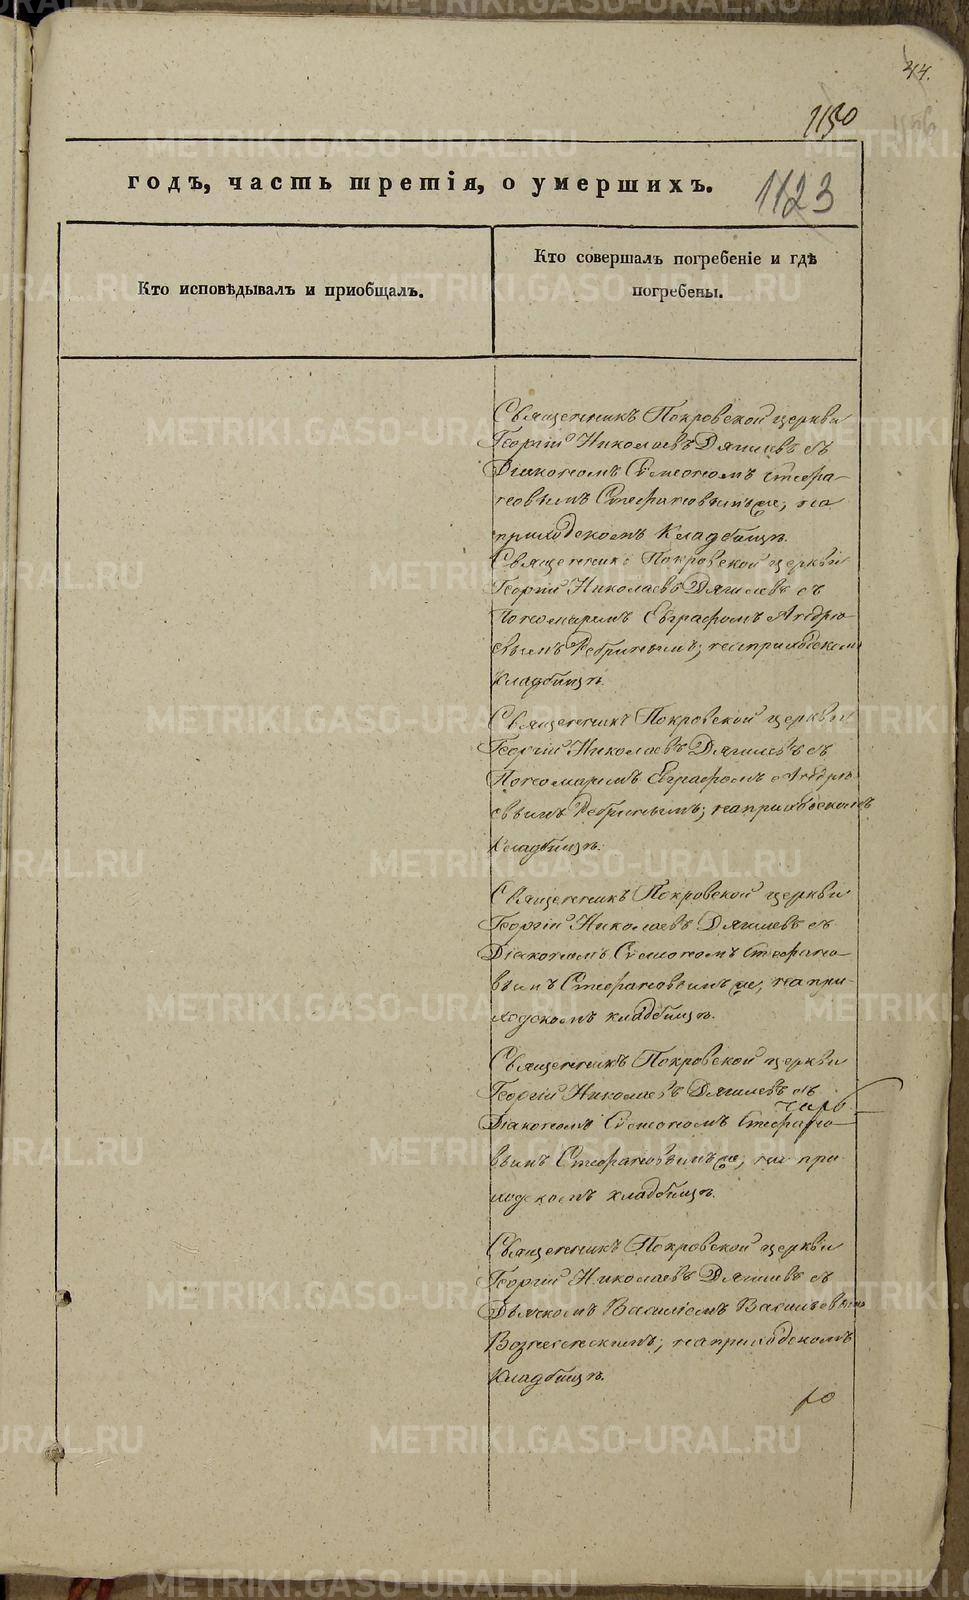 44.
1150
годъ, часть третія, о умершихъ.
1123
Кто исповѣдывалъ и приобщалъ.
Кто совершалъ погребеніе и гдѣ
погребены.
Священникъ Покровской церкви
Георгій Николаевъ Дягилевъ съ
Діакономъ Сімономъ Стефа-
новымъ Стефановымъ же, на
приходскомъ кладбищѣ.
Священникъ Покровской церкви
Георгій Николаевъ Дягилевъ съ
Пономаремъ Евграфомъ Андре-
евымъ Ребринымъ; на приходскомъ
кладбищѣ.
Священникъ Покровской церкви
Георгій Николаевъ Дягилевъ съ
Пономаремъ Евграфомъ Андре-
евымъ Ребринымъ; на приходскомъ
кладбищѣ.
Священникъ Покровской церкви
Георгій Николаевъ Дягилевъ съ
Діакономъ Сімономъ Стефано-
вымъ Стефановымъ же, на при-
ходскомъ кладбищѣ.
Священникъ Покровской церкви
Георгій Николаевъ Дягилевъ съ
Діакономъ Сімономъ Стефано-
вымъ Стефановымъ же, на при-
ходскомъ кладбищѣ.
Священникъ Покровской церкви
Георгій Николаевъ Дягилевъ съ
Дьячкомъ Василіемъ Васильевымъ
Вознесенскимъ; на приходскомъ
кладбищѣ.
METRIKI.GASO-URAL.RU